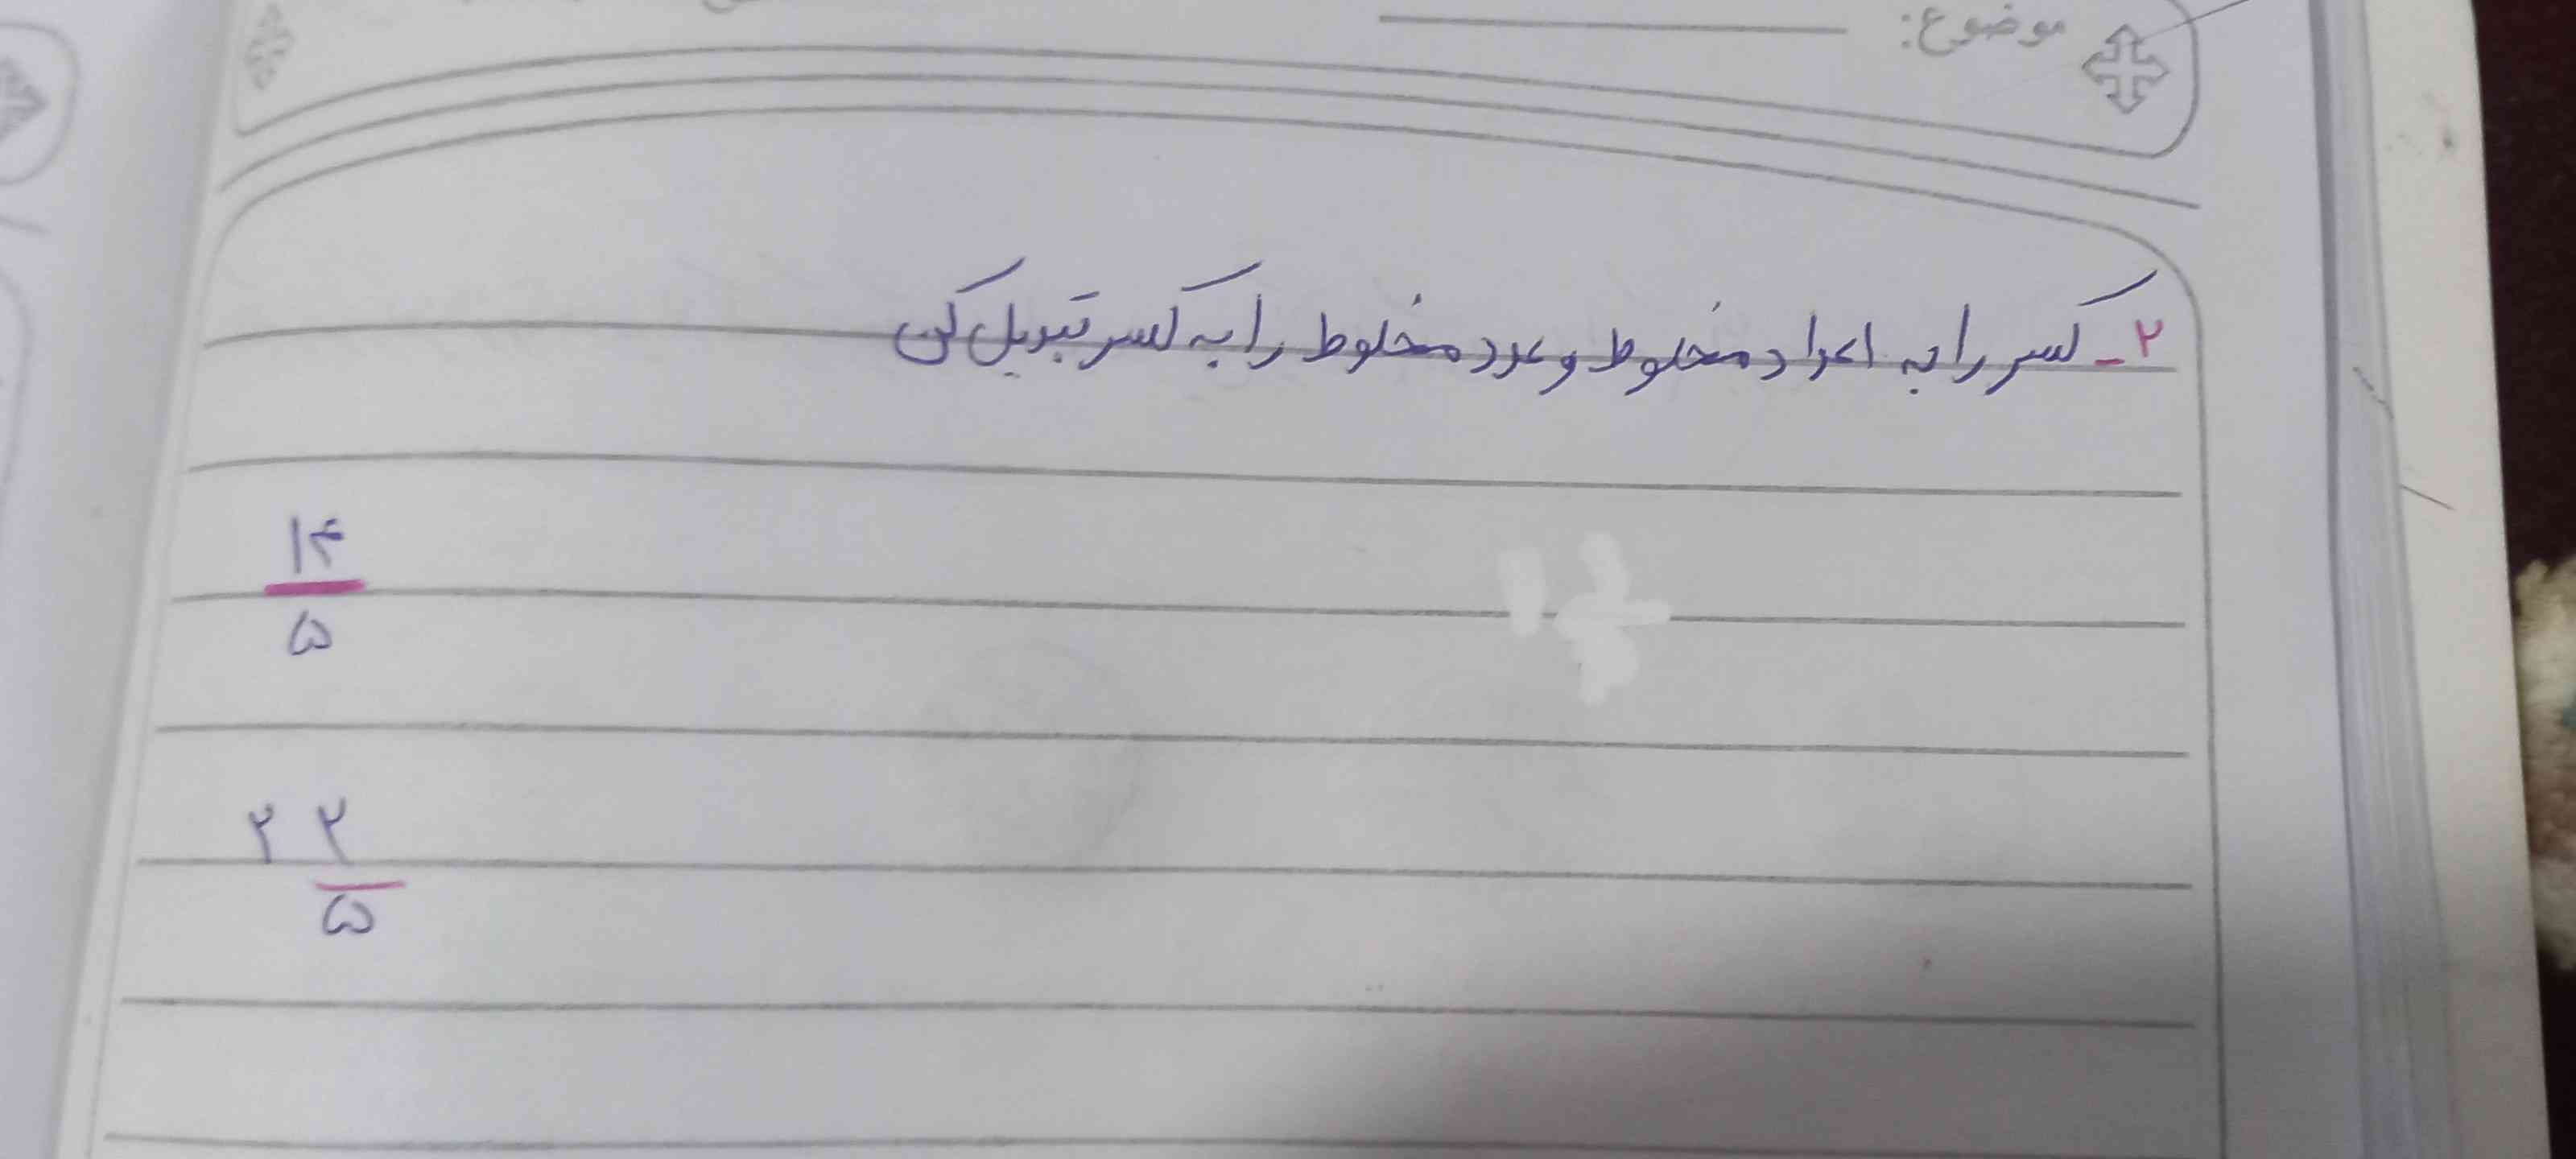 موضوع:
۲- کسر را به اعداد مخلوط و عدد مخلوط را به کسر تبدیل کن
۱۴
۵
۲ ۲
۵